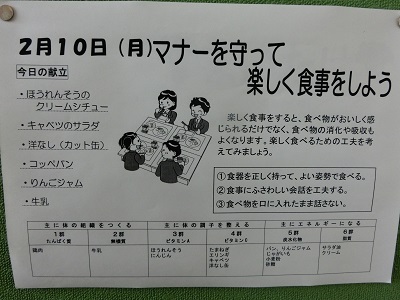 2月10日(月)マナーを守って
楽しく食事をしよう
今日の献立
・ほうれんそうの
クリームシチュー
・キャベツのサラダ
・洋なし(カット缶)
・コッペパン
・りんごジャム
・牛乳
楽しく食事をすると、食べ物がおいしく感
じられるだけでなく、食べ物の消化や吸収も
よくなります。楽しく食べるための工夫を考
えてみましょう。
①食器を正しく持って、よい姿勢で食べる。
②食事にふさわしい会話を工夫する。
③食べ物を口に入れたまま話さない。
主に体の組織をつくる 主に体の調子を整える 主にエネルギーになる
1群 2群 3群 4群 5群 6群
たんぱく質 無機質 ビタミンA ビタミンC 炭水化物 脂質
鶏肉 牛乳 ほうれんそう たまねぎ パン、りんごジャム サラダ油
にんじん エリンギ じゃがいも クリーム
キャベツ 小麦粉
洋なし缶 砂糖